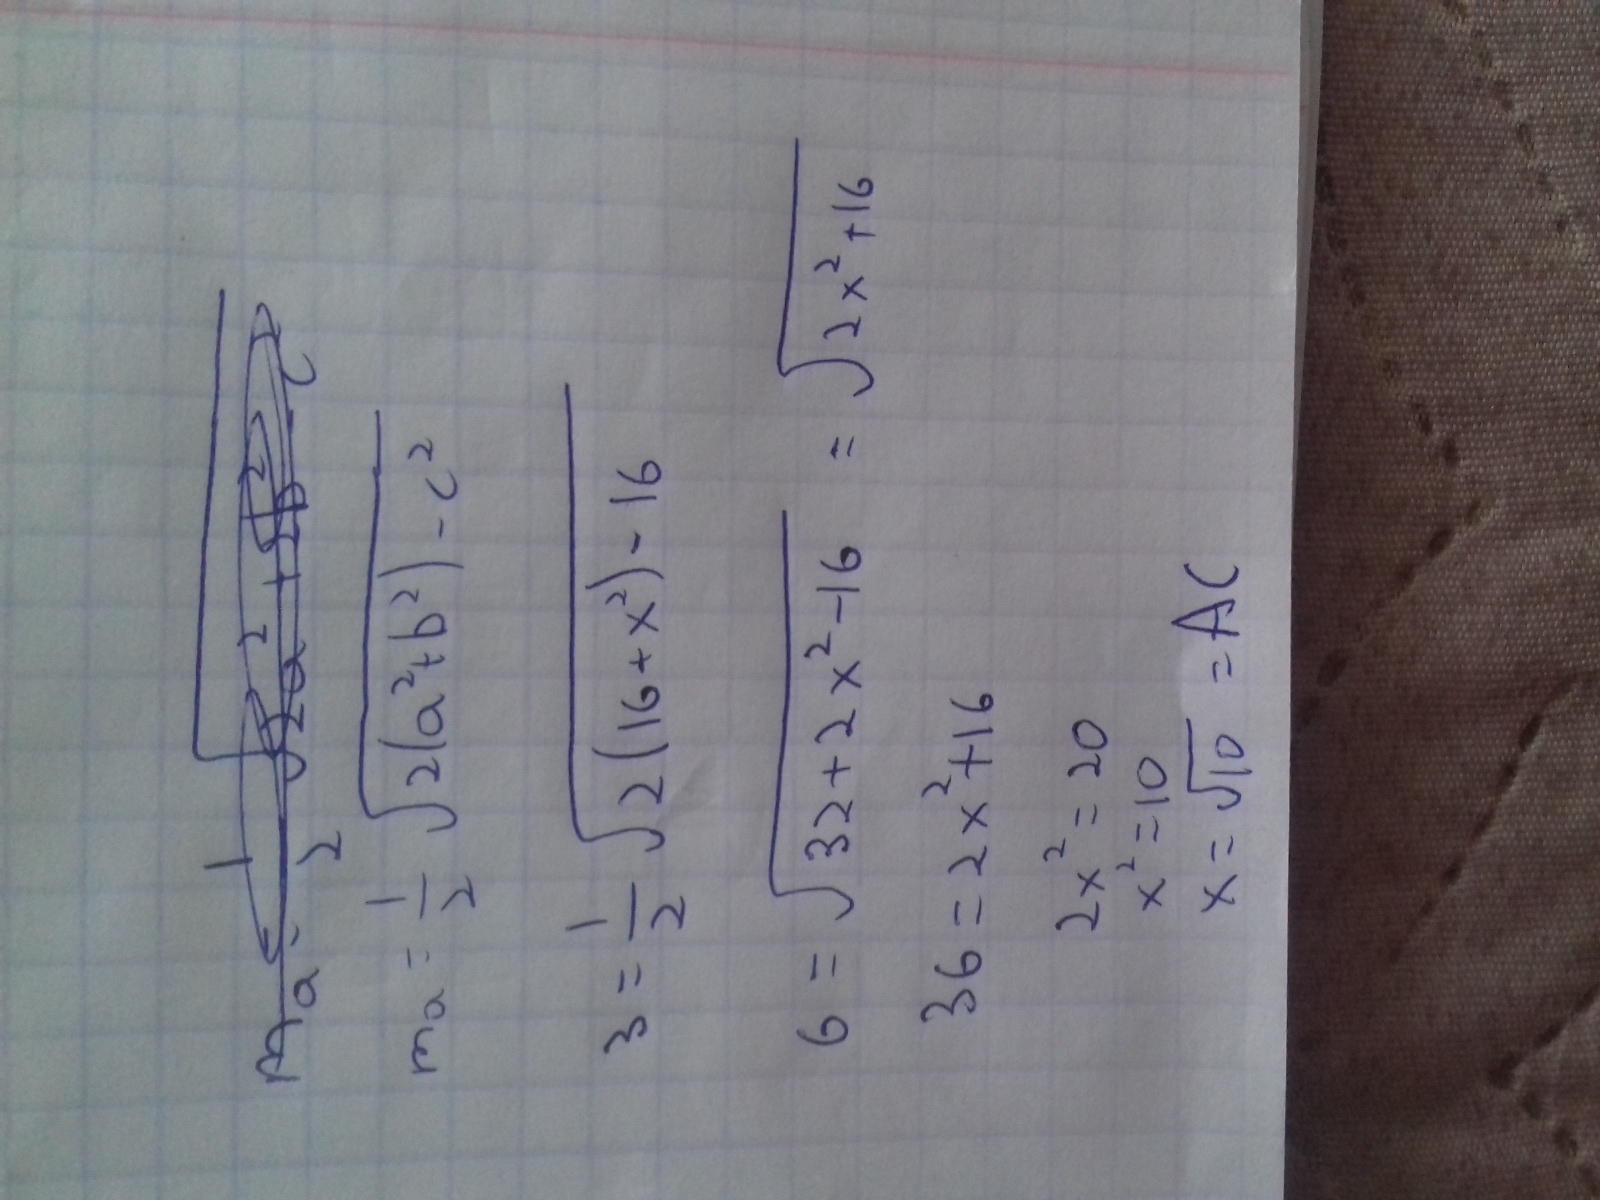 mₐ = 1/2 √(2(a²+b²) - c²)
3 = 1/2 √(2(16+x²) - 16)
6 = √(32+2x²-16) = √(2x²+16)
36 = 2x²+16
2x² = 20
x² = 10
x = √10 = AC